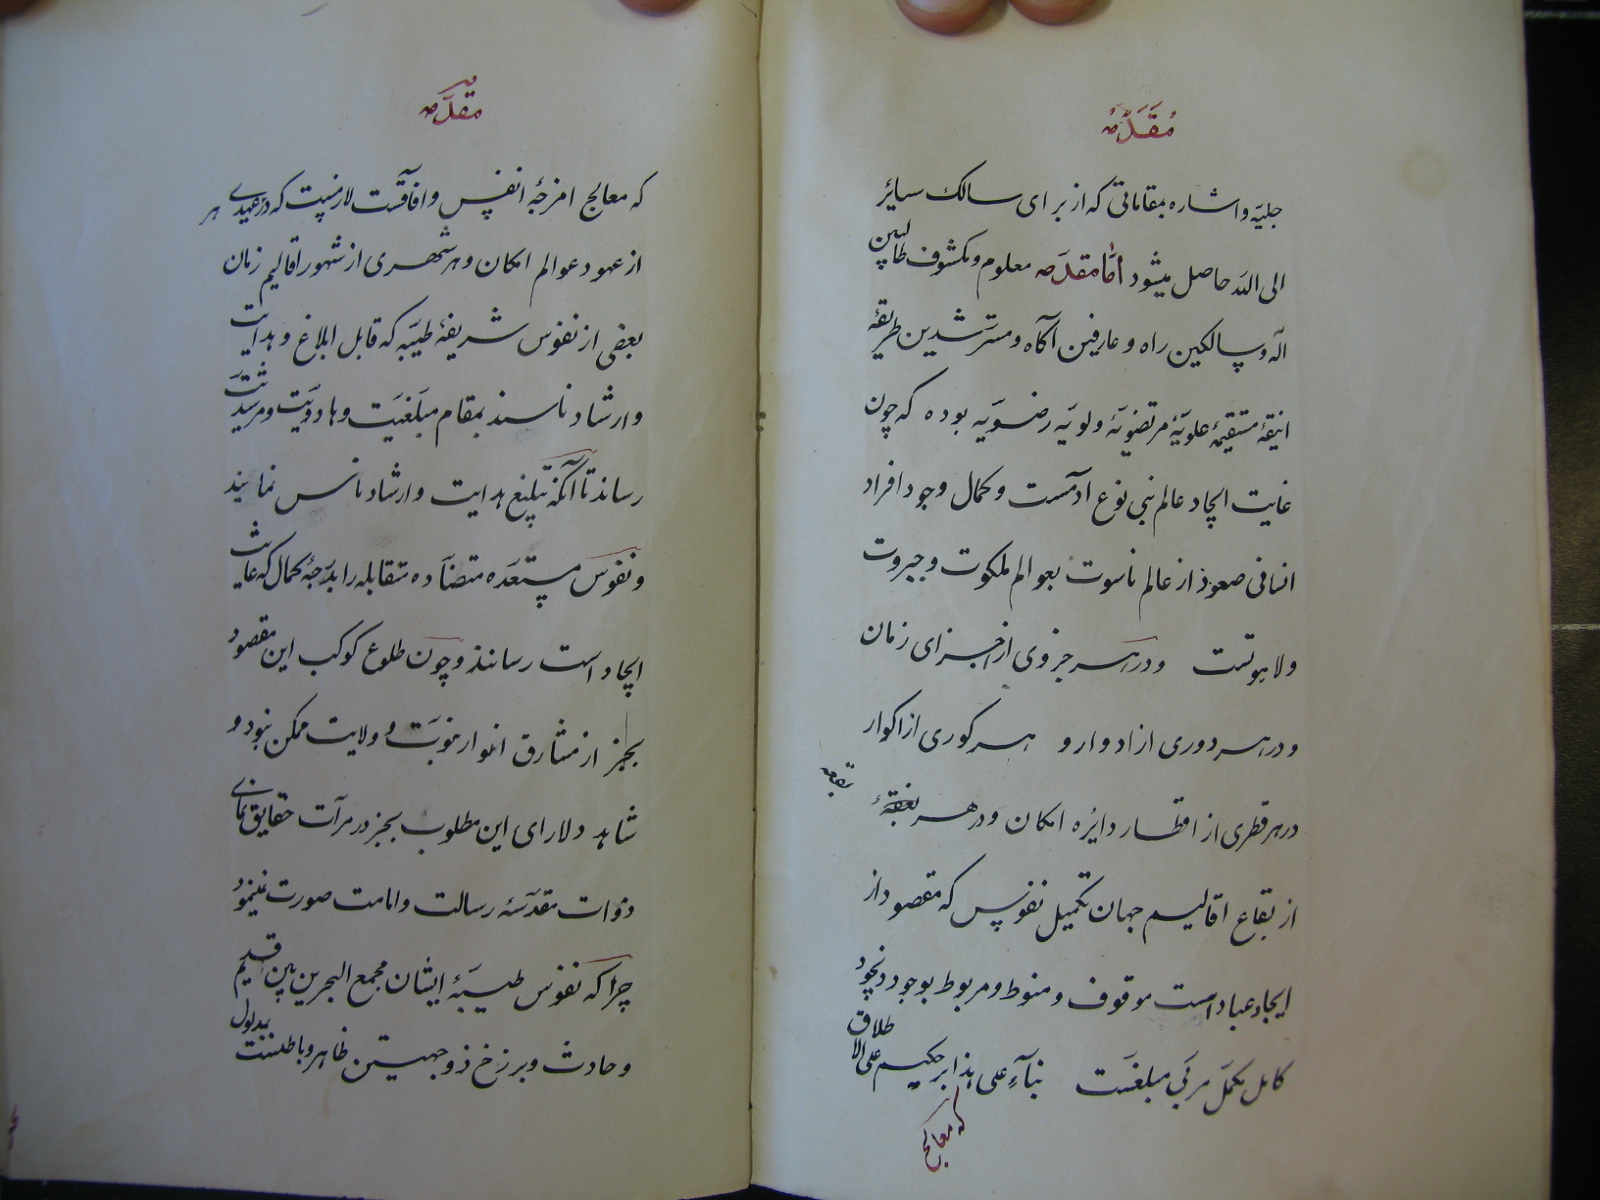 مُقَدَّمه
جلیّه و اشاره بمقاماتی که از برای سالک سایر
الی الله حاصل میشود امّا مقدّمه معلوم و مکشوف طالبین
آله و سالکین راه و عارفین آگاه و مسترشدین طریقهٔ
انیقهٔ مستقیمهٔ علویّهٔ مرتضویّهٔ ولویّه رضویّه بوده که چون
غایت ایجاد عالم بنی نوع آدمست و کمال وجود افراد
انسانی صعود از عالم ناسوت بعوالم ملکوت و جبروت
و لاهوتست و در هر جزوی از اجزای زمان
و در هر دوری از ادوار و هر کوری از اکوار
در هر قطری از اقطار دایره امکان و در هر بقعهٔ
بقعه
از بقاع اقالیم جهان تکمیل نفوس که مقصود از
ایجاد عباد است موقوف و منوط و مربوط بوجود ذیجود
کامل مکمّل مربّی مبلغست بنآء علی هذا بر حکیم علی الاطلاق
که معالج
مقدّمه
که معالج امزجهٔ انفس و آفاقست لازمست که در عهدی هر
از عهود عوالم امکان و هر شهری از شهور اقالیم زمان
بعضی از نفوس شریفهٔ طیّبه که قابل ابلاغ و هدایت
و ارشاد ناسند بمقام مبلّغیّت و هادویّت و مرشدیّت
رساند تا آنکه تبلیغ هدایت و ارشاد ناس نمایند
و نفوس مستعده متضآده متقابله را بدرجهٔ کمال که غایت
ایجاد است رسانند و چون طلوع کوکب این مقصود
بجز از مشارق انوار نبوّت و ولایت ممکن نبود و
شاهد دلارای این مطلوب بجز در مرآت حقایق نمای
ذوات مقدّسهٔ رسالت و امامت صورت نمینمود
چرا که نفوس طیّبهٔ ایشان مجمع البحرین بین قدیم
و حادث و برزخ ذو جهتین ظاهر و باطنست بمدلول